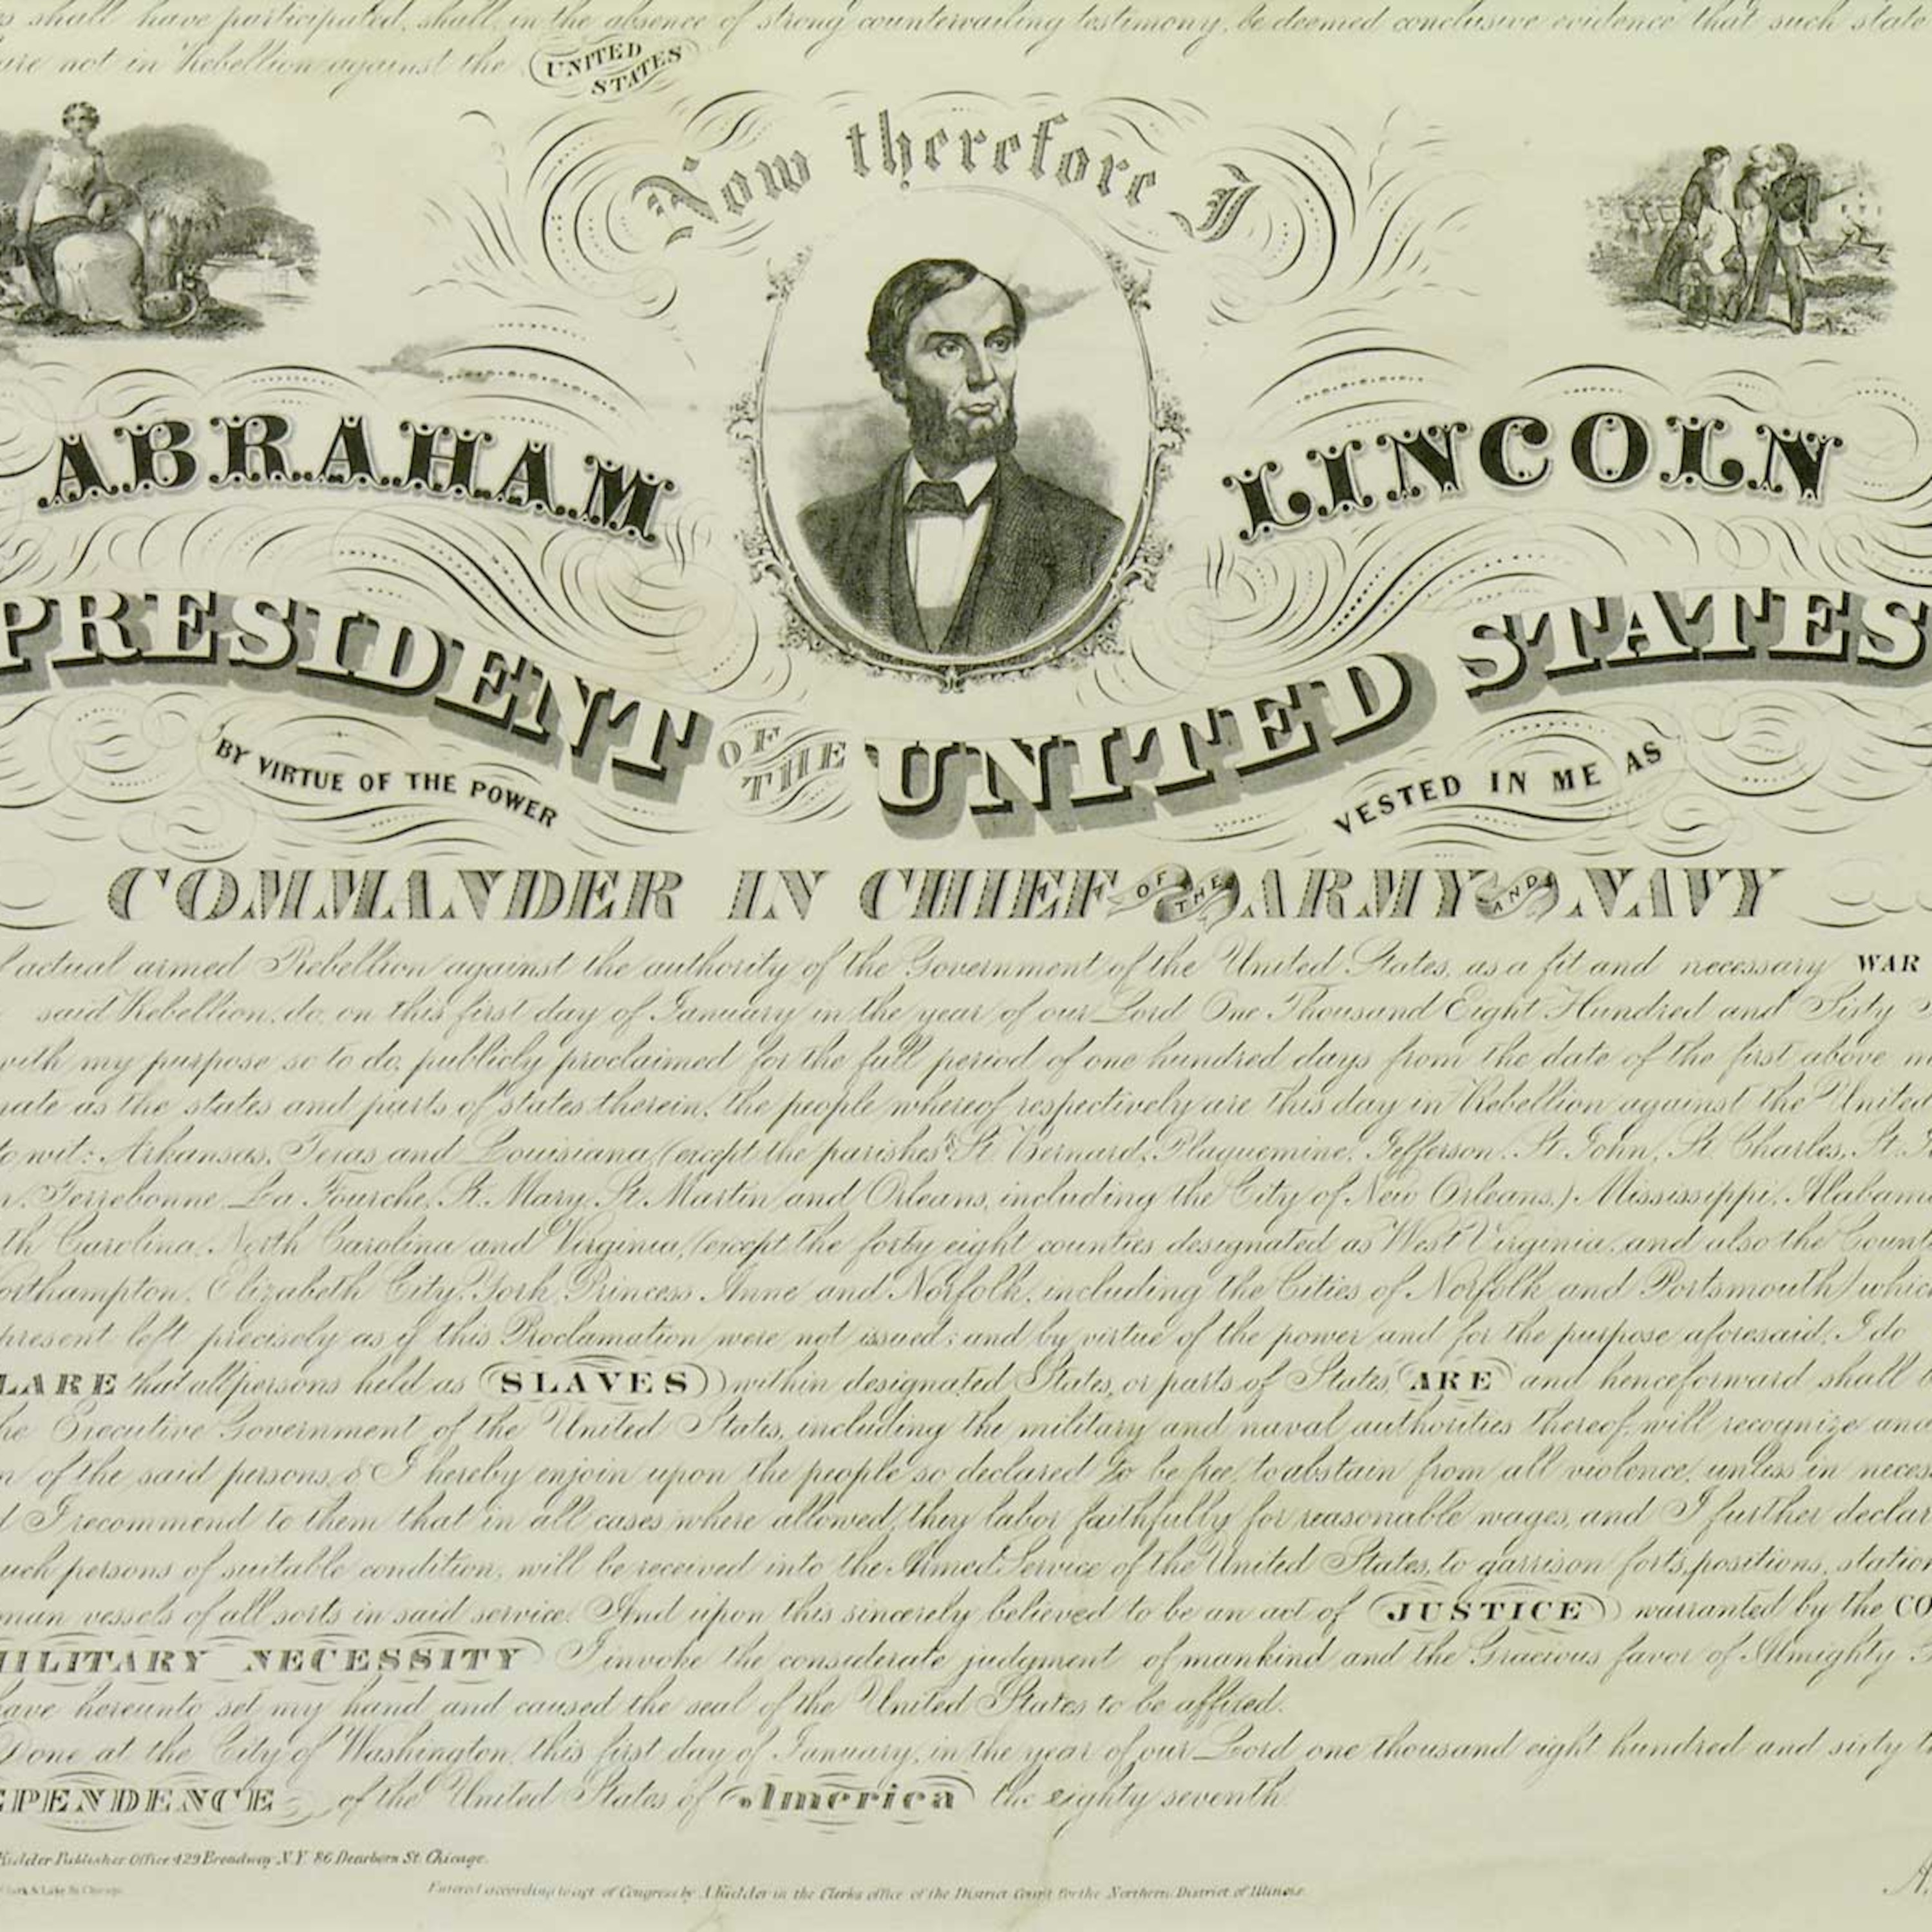 shall have participated, shall, in the absence of strong countervailing testimony, be deemed conclusive evidence that such state
are not in Rebellion against the UNITED STATES
Now therefore I
ABRAHAM LINCOLN
PRESIDENT OF THE UNITED STATES
BY VIRTUE OF THE POWER VESTED IN ME AS
COMMANDER IN CHIEF OF THE ARMY AND NAVY
actual armed Rebellion against the authority of the Government of the United States, as a fit and necessary WAR
said Rebellion, do, on this first day of January in the year of our Lord One Thousand Eight Hundred and Sixty
with my purpose so to do, publicly proclaimed for the full period of one hundred days from the date of the first above
nate as the states and parts of states therein, the people whereof respectively are this day in Rebellion against the United
to wit: Arkansas, Texas and Louisiana, (except the parishes St. Bernard, Plaquemine, Jefferson, St. John, St. Charles, St.
Terrebonne, La Fourche, St. Mary, St. Martin and Orleans, including the City of New Orleans,) Mississippi, Alabam
th Carolina, North Carolina and Virginia, (except the forty eight counties designated as West Virginia, and also the Count
orthampton, Elizabeth City, York, Princess Anne and Norfolk, including the Cities of Norfolk and Portsmouth) whic
present left precisely as if this Proclamation were not issued; and by virtue of the power and for the purpose aforesaid, I do
LARE that all persons held as SLAVES within designated States, or parts of States, ARE and henceforward shall b
he Executive Government of the United States, including the military and naval authorities thereof, will recognize and
of the said persons, & I hereby enjoin upon the people so declared to be free, to abstain from all violence, unless in neces
I recommend to them that in all cases where allowed, they labor faithfully for reasonable wages, and I further declar
uch persons of suitable condition, will be received into the Armed Service of the United States, to garrison forts, positions, station
man vessels of all sorts in said service. And upon this sincerely believed to be an act of JUSTICE warranted by the CO
MILITARY NECESSITY I invoke the considerate judgment of mankind and the Gracious favor of Almighty
have hereunto set my hand and caused the seal of the United States to be affixed.
Done at the City of Washington, this first day of January, in the year of our Lord one thousand eight hundred and sixty t
EPENDENCE of the United States of America the eighty seventh
Kidder Publisher Office 429 Broadway N.Y. 86 Dearborn St. Chicago.
Entered according to act of Congress by A Kidder in the Clerks office of the District Court for the Northern District of Illinois